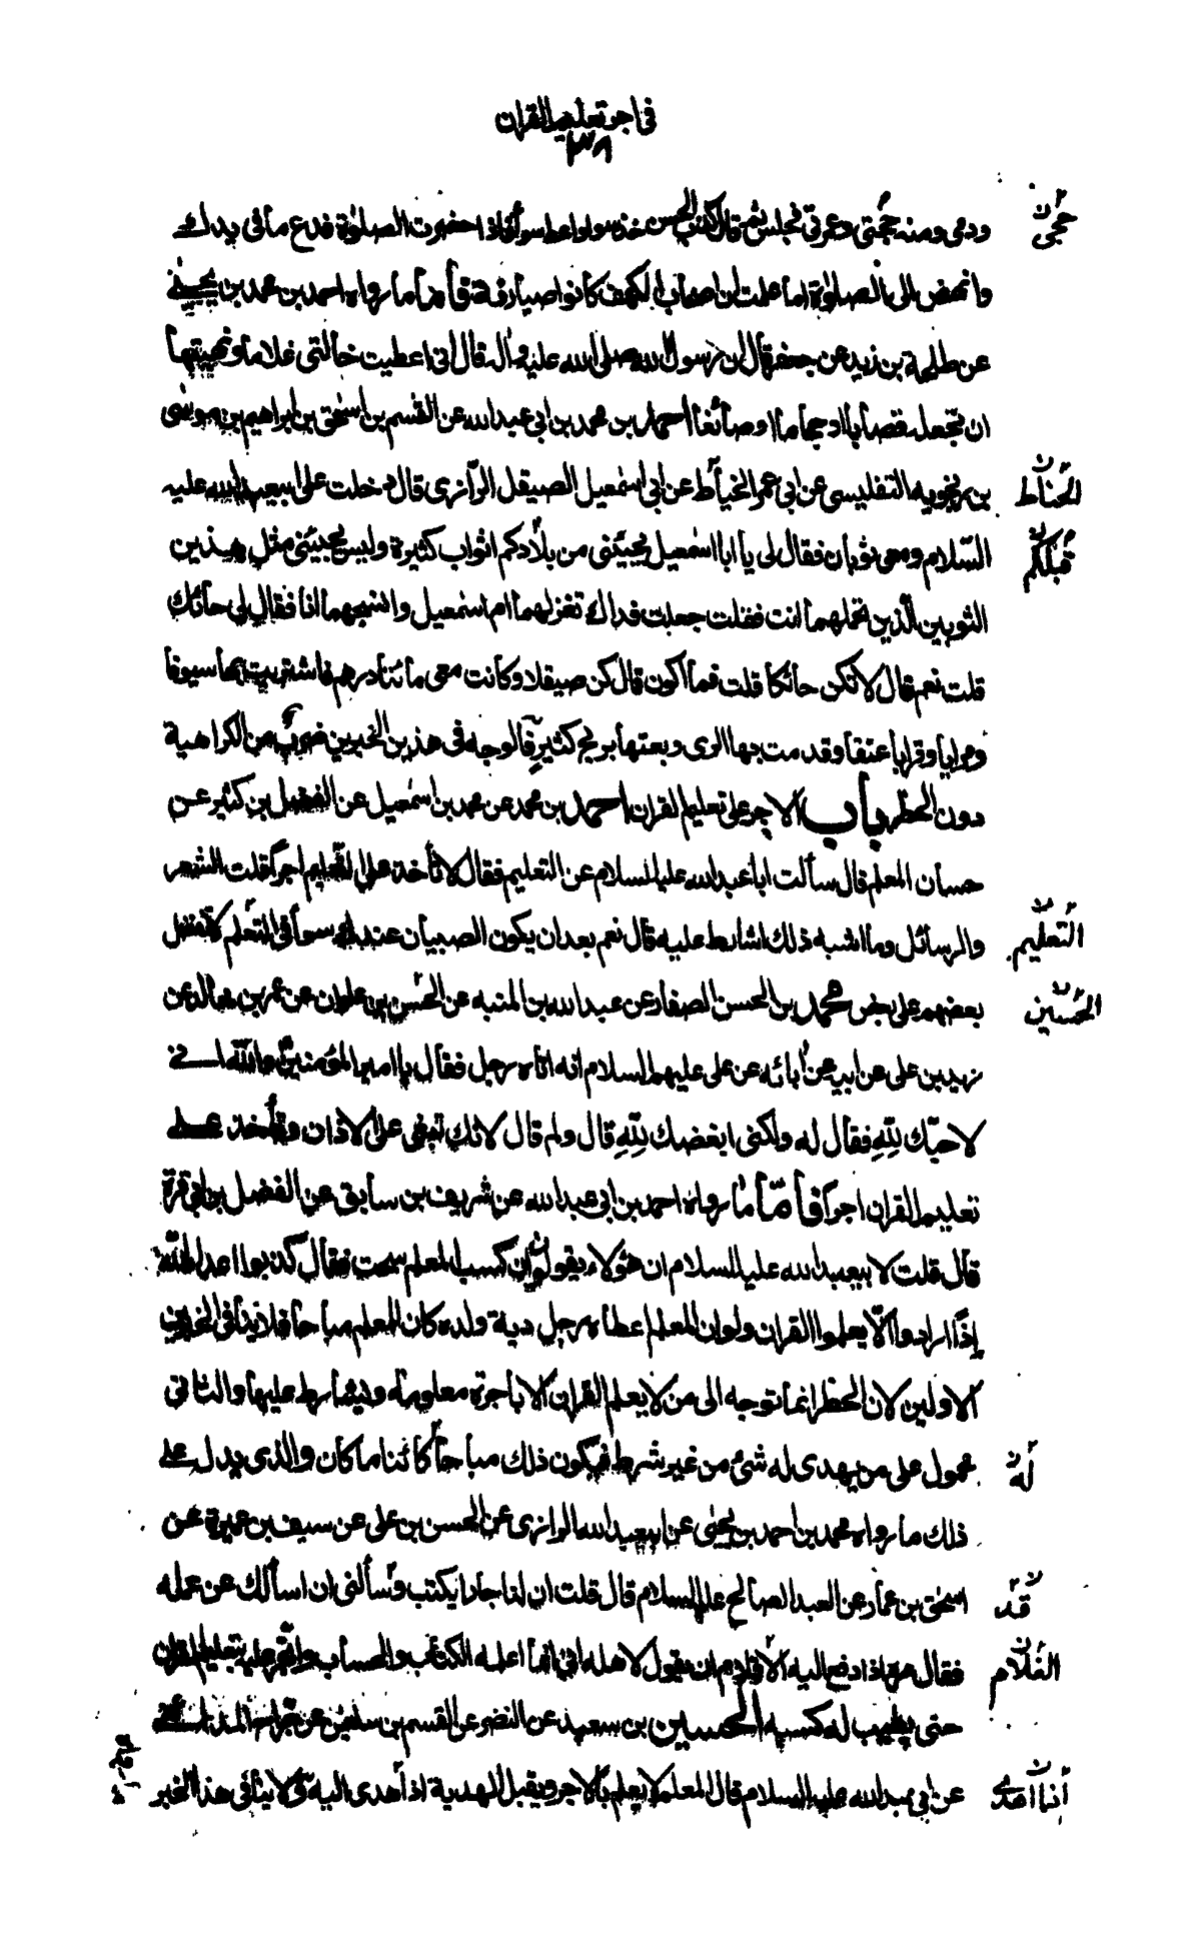 في اجر تعليم القران
٣٨
ودمى ومنه حجتى وعمرتى فجلس ثم قال كذب الحسن خذ سواء واعط سواء فاذا حضرت الصلوة فدع ما فى يدك
حجى
وانهض الى الصلوة اما علمت ان اصحاب الكهف كانوا صيارفة فأما ما رواه احمد بن محمد بن يحيى
عن طلحة بن زيد عن جعفر قال ان رسول الله صلى الله عليه واله قال انى اعطيت خالتى غلاما ونهيتها
ان تجعله قصابا او حجاما او صائغا احمد بن محمد بن ابى عبد الله عن القسم بن اسحق بن ابراهيم بن موسى
بن زنجويه التفليسى عن ابى عمر الخياط عن ابى اسمعيل الصيقل الرازى قال دخلت على ابيعبد الله عليه
الحناط
السلام ومعى ثوبان فقال لى يا ابا اسمعيل يجيئنى من بلادكم اثواب كثيرة وليس يجيئنى مثل هذين
قبلكم
الثوبين الذين تحملهما انت فقلت جعلت فداك تغزلهما ام اسمعيل وانسجهما انا فقال لى حائك
قلت نعم قال لا تكن حائكا قلت فما اكون قال كن صيقلا وكانت معى مائتا درهم فاشتريت بها سيوفا
ومرايا وقرابا عتقا وقدمت بها الرى وبعتها بربح كثير فالوجه فى هذين الخبرين ضرب من الكراهية
دون الحظر باب الاجر على تعليم القران احمد بن محمد عن محمد بن اسمعيل عن الفضل بن كثير عن
حسان المعلم قال سألت ابا عبد الله عليه السلام عن التعليم فقال لا تأخذ على التعليم اجرا قلت الشعر
والرسائل وما اشبه ذلك اشارط عليه قال نعم بعد ان يكون الصبيان عندك سواء فى التعلم لا تفضل
التعليم
بعضهم على بعض محمد بن الحسن الصفار عن عبد الله بن المنبه عن الحسن بن علوان عن عمرو بن خالد عن
الحسين
زيد بن على عن ابيه عن ابائه عن على عليهم السلام انه اتاه رجل فقال يا امير المؤمنين والله انى
لاحبك لله فقال له ولكنى ابغضك لله قال ولم قال لانك تبغى على الاذان وتأخذ على
تعليم القران اجرا فأما ما رواه احمد بن ابى عبد الله عن شريف بن سابق عن الفضل بن ابى قرة
قال قلت لابيعبد الله عليه السلام ان هؤلاء يقولون ان كسب المعلم سحت فقال كذبوا اعداء الله
إنما ارادوا الا يعلموا القران ولو ان المعلم اعطاه رجل دية ولده كان للمعلم مباحا فلا ينافى الخبرين
الاولين لان الحظر انما توجه الى من لا يعلم القران الا باجرة معلومة ويشارط عليها والثانى
محمول على من يهدى له شئ من غير شرط فيكون ذلك مباحا كائنا ما كان والذى يدل على
له
ذلك ما رواه محمد بن احمد بن يحيى عن ابيعبد الله الرازى عن الحسن بن على عن سيف بن عميرة عن
اسحق بن عمار عن العبد الصالح عليه السلام قال قلت ان لنا جارا يكتب وسألنى ان اسألك عن عمله
قد
فقال مره اذا دفع اليه الاقلام ان يقول لاهله انى انما اعلمه الكتاب والحساب واتجر عليه بتعليم القران
الغلام
حتى يطيب له كسبه الحسين بن سعيد عن النضر عن القسم بن سليمن عن جراح المداينى
عن ابى عبد الله عليه السلام قال المعلم لا يعلم بالاجر ويقبل الهدية اذا أهدى اليه ولا ينافى هذا الخبر
أنما اهدى